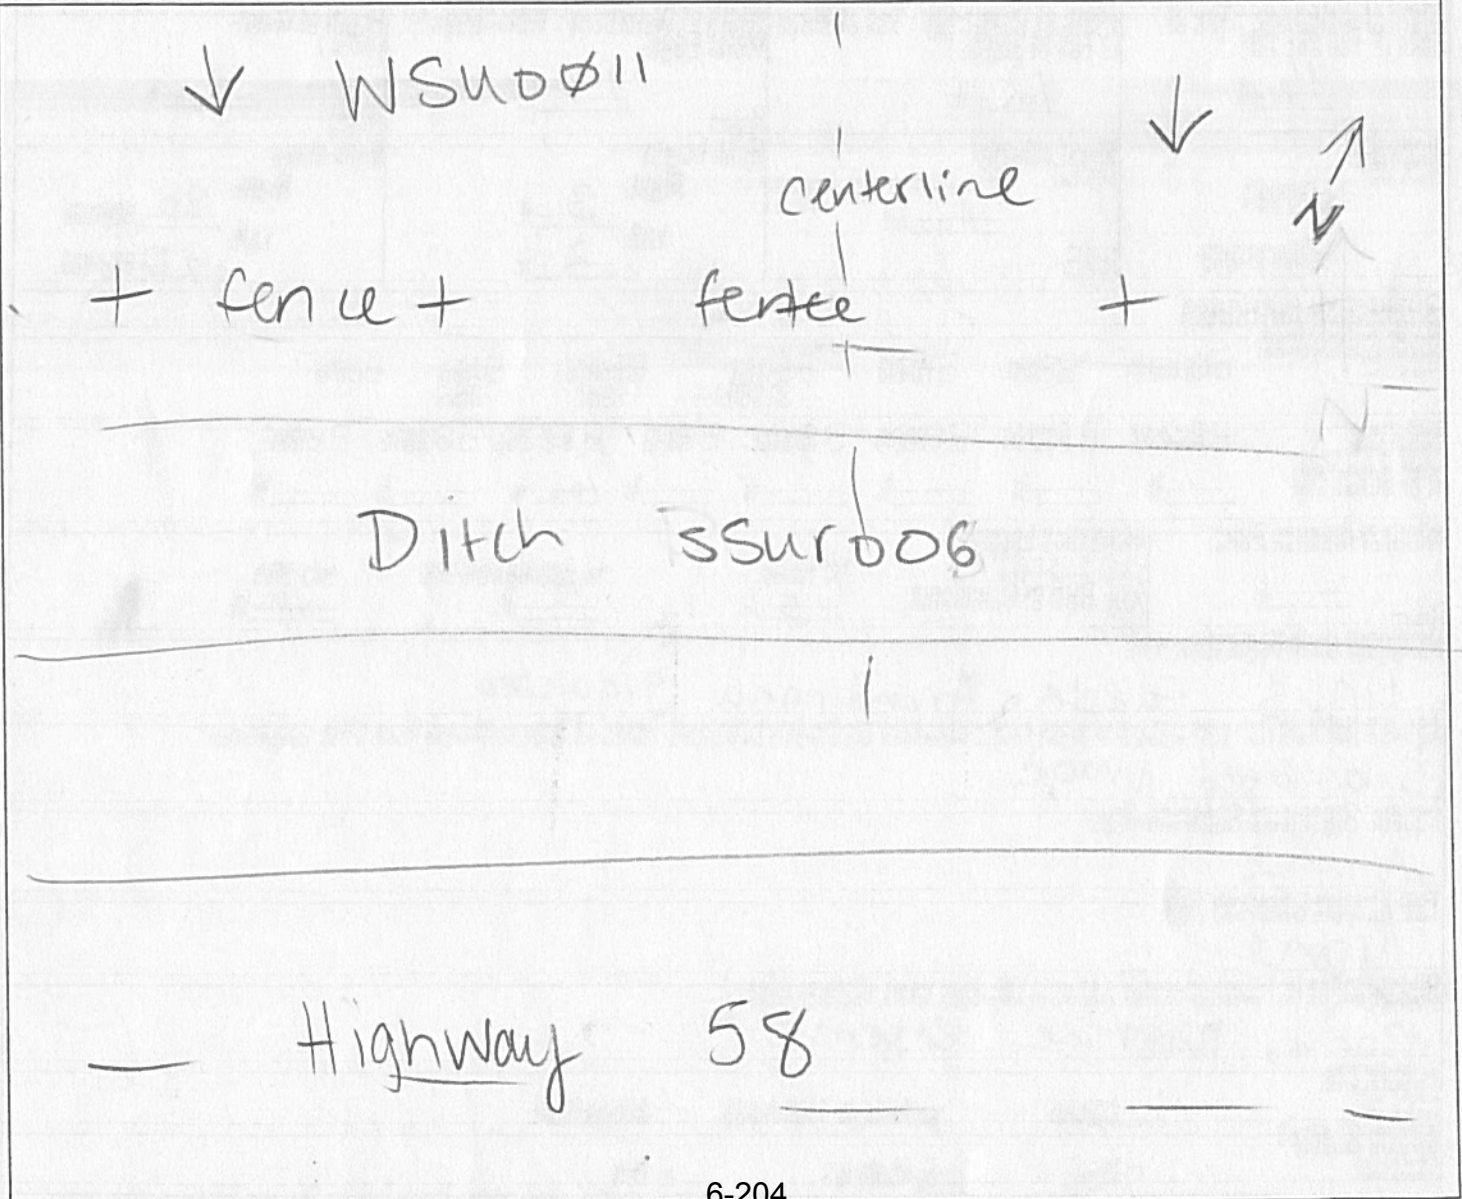 WSUO0Ø11
centerline
N
+ fence + fence +
N
Ditch SSur006
Highway 58
6-204